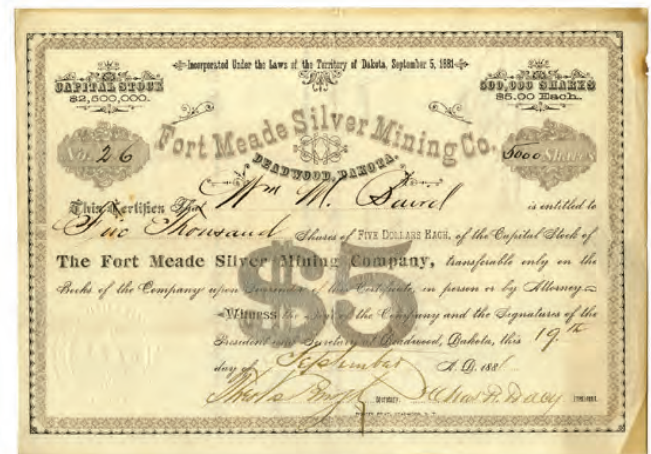 Incorporated Under the Laws of the Territory of Dakota, September 5, 1881
CAPITAL STOCK
$2,500,000.
500,000 SHARES
$5.00 Each.
Fort Meade Silver Mining Co.
DEADWOOD, DAKOTA.
No. 26
5000 Shares
This Certifies That Wm M. is entitled to
Five Thousand Shares of FIVE DOLLARS EACH, of the Capital Stock of
The Fort Meade Silver Mining Company, transferable only on the
Books of the Company upon Surrender of this Certificate, in person or by Attorney.
$5
Witness the Seal of the Company and the Signatures of the
President and Secretary at Deadwood, Dakota, this 19th
day of September A. D. 1881
Secretary. Chas. President.